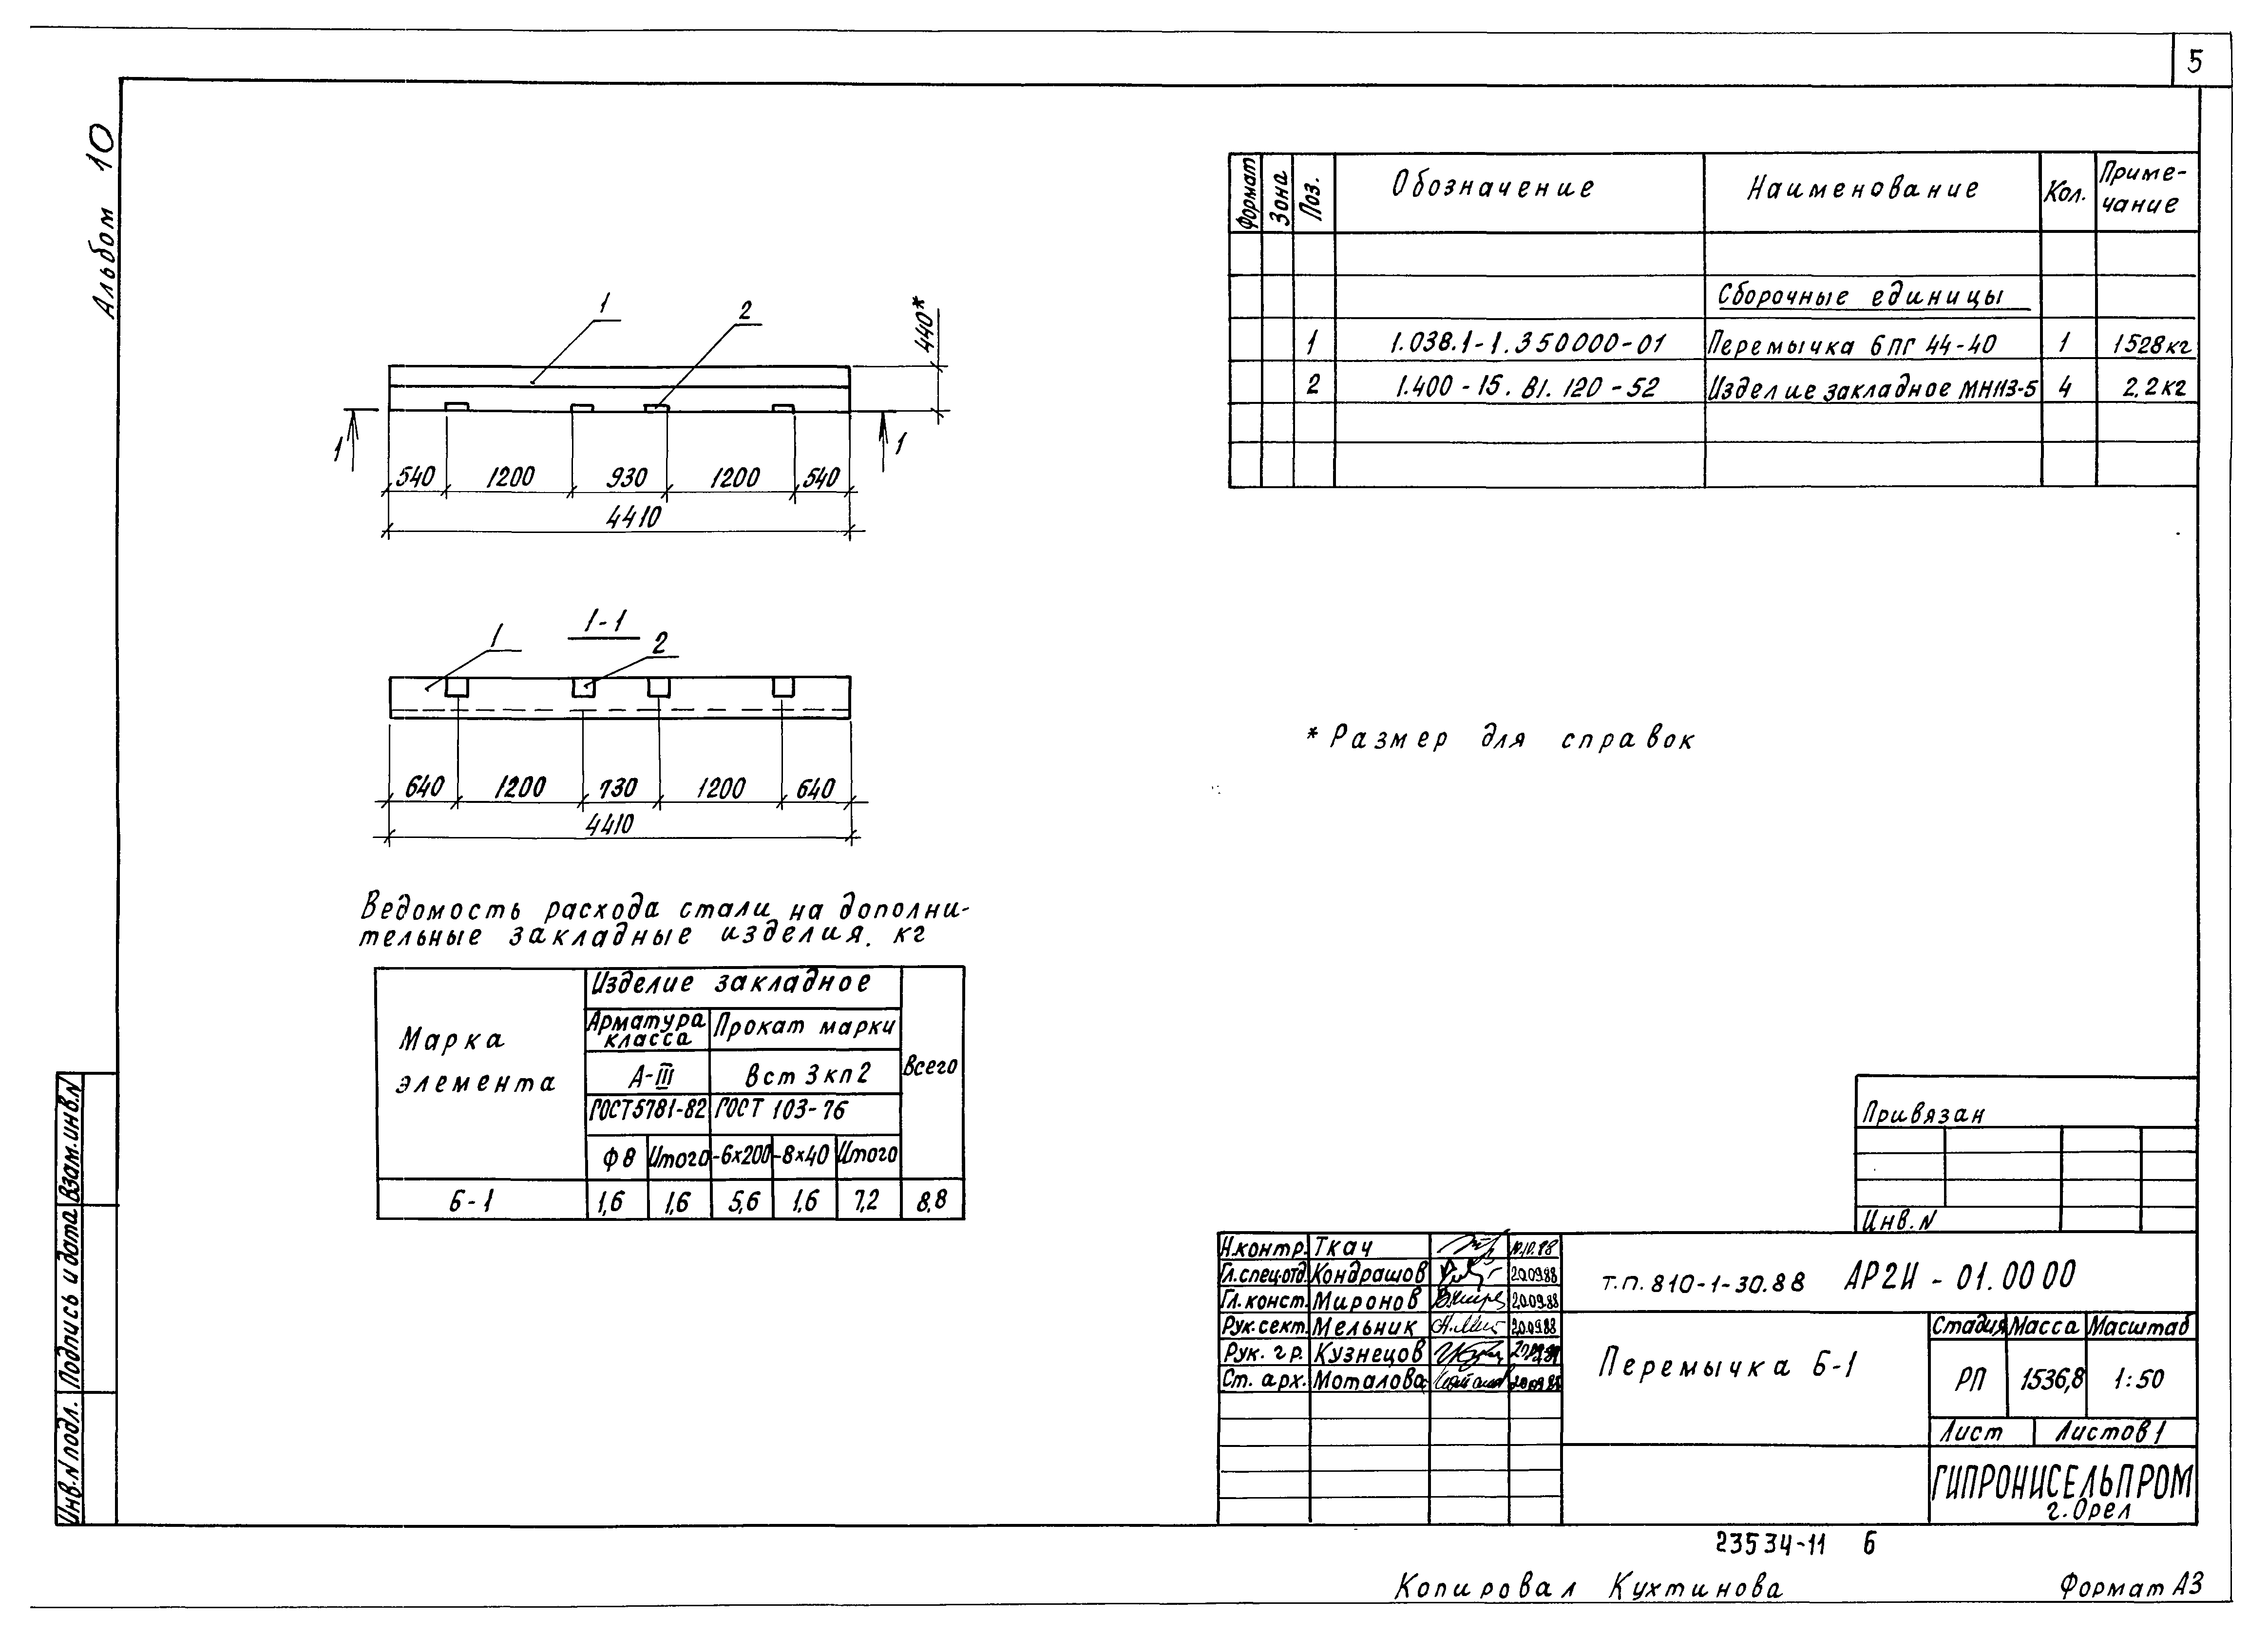 5
Альбом 10
Формат
Зона
Поз.
Обозначение
Наименование
Кол.
Приме-
чание
Сборочные единицы
1 1.038.1-1.350000-01 Перемычка 6ПГ 44-40 1 1528кг
2 1.400-15.В1.120-52 Изделие закладное МН113-5 4 2.2кг
1 2
440*
1 1
540 1200 930 1200 540
4410
1-1
1 2
640 1200 730 1200 640
4410
* Размер для справок
Ведомость расхода стали на дополни-
тельные закладные изделия, кг
Марка
элемента
Изделие закладное
Арматура
класса
Прокат марки
Всего
А-III
Вст3кп2
ГОСТ5781-82
ГОСТ 103-76
Ф8 Итого -6×200 -8×40 Итого
Б-1 1,6 1,6 5,6 1,6 7,2 8,8
Привязан
Инв.N
Взам.инв.N
Подпись и дата
Инв.N подл.
Н.контр. Ткач 10.10.88
Гл.спец.отд. Кондрашов 20.09.88
Гл.конст. Миронов 20.09.88
Рук.сект. Мельник 20.09.88
Рук. гр. Кузнецов
Ст. арх. Моталова
т.п. 810-1-30.88 АР2И - 01.00 00
Перемычка Б-1
Стадия Масса Масштаб
РП 1536,8 1:50
Лист Листов 1
ГИПРОНИСЕЛЬПРОМ
г. Орел
23534-11 6
Копировал Кухтинова
Формат А3